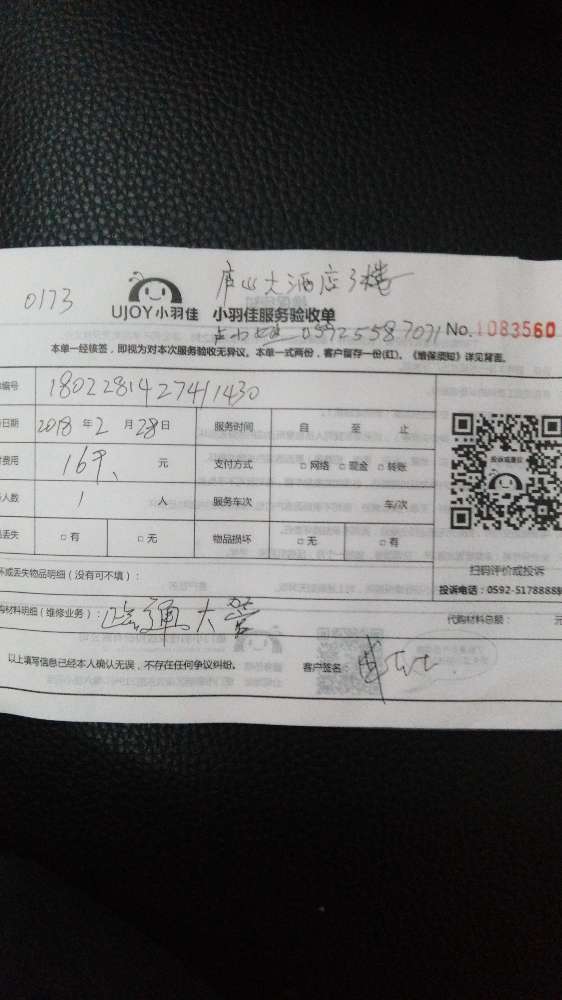 0173
庐山大酒店3楼
UJOY小羽佳 小羽佳服务验收单
05925587071 No.1083560
本单一经核签,即视为对本次服务验收无异议。本单一式两份,客户留存一份(红)。《维保须知》详见背面。
编号 1802281427411430
日期 2018年2月28日 服务时间 自 至 止
费用 元 支付方式 □网络 □现金 □转账
人数 1 人 服务车次 车/次
丢失 □有 □无 物品损坏 □无 □有
投诉或建议
扫码评价或投诉
投诉电话:0592-5178888
坏或丢失物品明细(没有可不填):
购材料明细(维修业务): 疏通大管 代购材料总额: 元
以上填写信息已经本人确认无误,不存在任何争议纠纷。 客户签名: